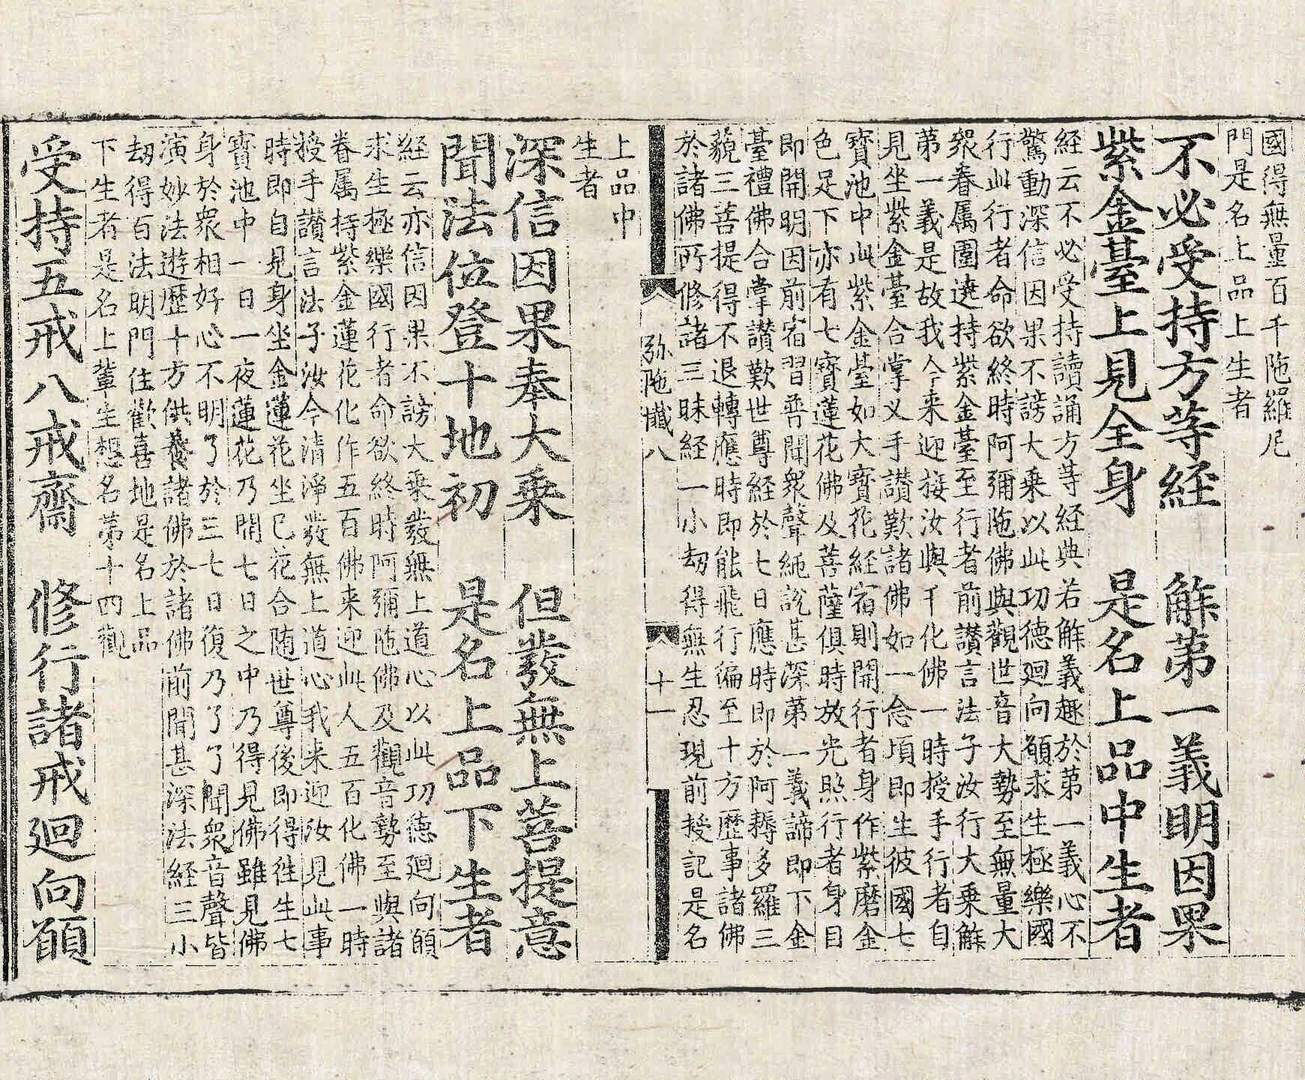 國得無量百千陁羅尼
門是名上品上生者
不必受持方等経　解第一義明因果
紫金臺上見全身　是名上品中生者
経云不必受持讀誦方等経典若解義趣於第一義心不
驚動深信因果不謗大乗以此功德廻向願求生極樂國
行此行者命欲終時阿彌陁佛與觀世音大勢至無量大
衆眷属圍遶持紫金臺至行者前讃言法子汝行大乗解
第一義是故我今来迎接汝與千化佛一時授手行者自
見坐紫金臺合掌叉手讃歎諸佛如一念頃即生彼國七
寶池中此紫金臺如大寶花経宿則開行者身作紫磨金
色足下亦有七寶蓮花佛及菩薩俱時放光照行者身目
即開明因前宿習普聞衆聲純說甚深第一義諦即下金
臺禮佛合掌讃歎世尊経於七日應時即於阿耨多羅三
藐三菩提得不退轉應時即能飛行徧至十方歷事諸佛
於諸佛所修諸三昧経一小劫得無生忍現前授記是名
弥陁懺八　十一
上品中
生者
深信因果奉大乗　但發無上菩提意
聞法位登十地初　是名上品下生者
経云亦信因果不謗大乗發無上道心以此功德廻向願
求生極樂國行者命欲終時阿彌陁佛及觀音勢至與諸
眷属持紫金蓮花化作五百佛来迎此人五百化佛一時
授手讃言法子汝今清淨發無上道心我来迎汝見此事
時即自見身坐金蓮花坐已花合随世尊後即得徃生七
寶池中一日一夜蓮花乃開七日之中乃得見佛雖見佛
身於衆相好心不明了於三七日復乃了了聞衆音聲皆
演妙法遊歷十方供養諸佛於諸佛前聞甚深法経三小
劫得百法明門住歡喜地是名上品
下生者是名上輩生想名第十四觀
受持五戒八戒齋　修行諸戒廻向願